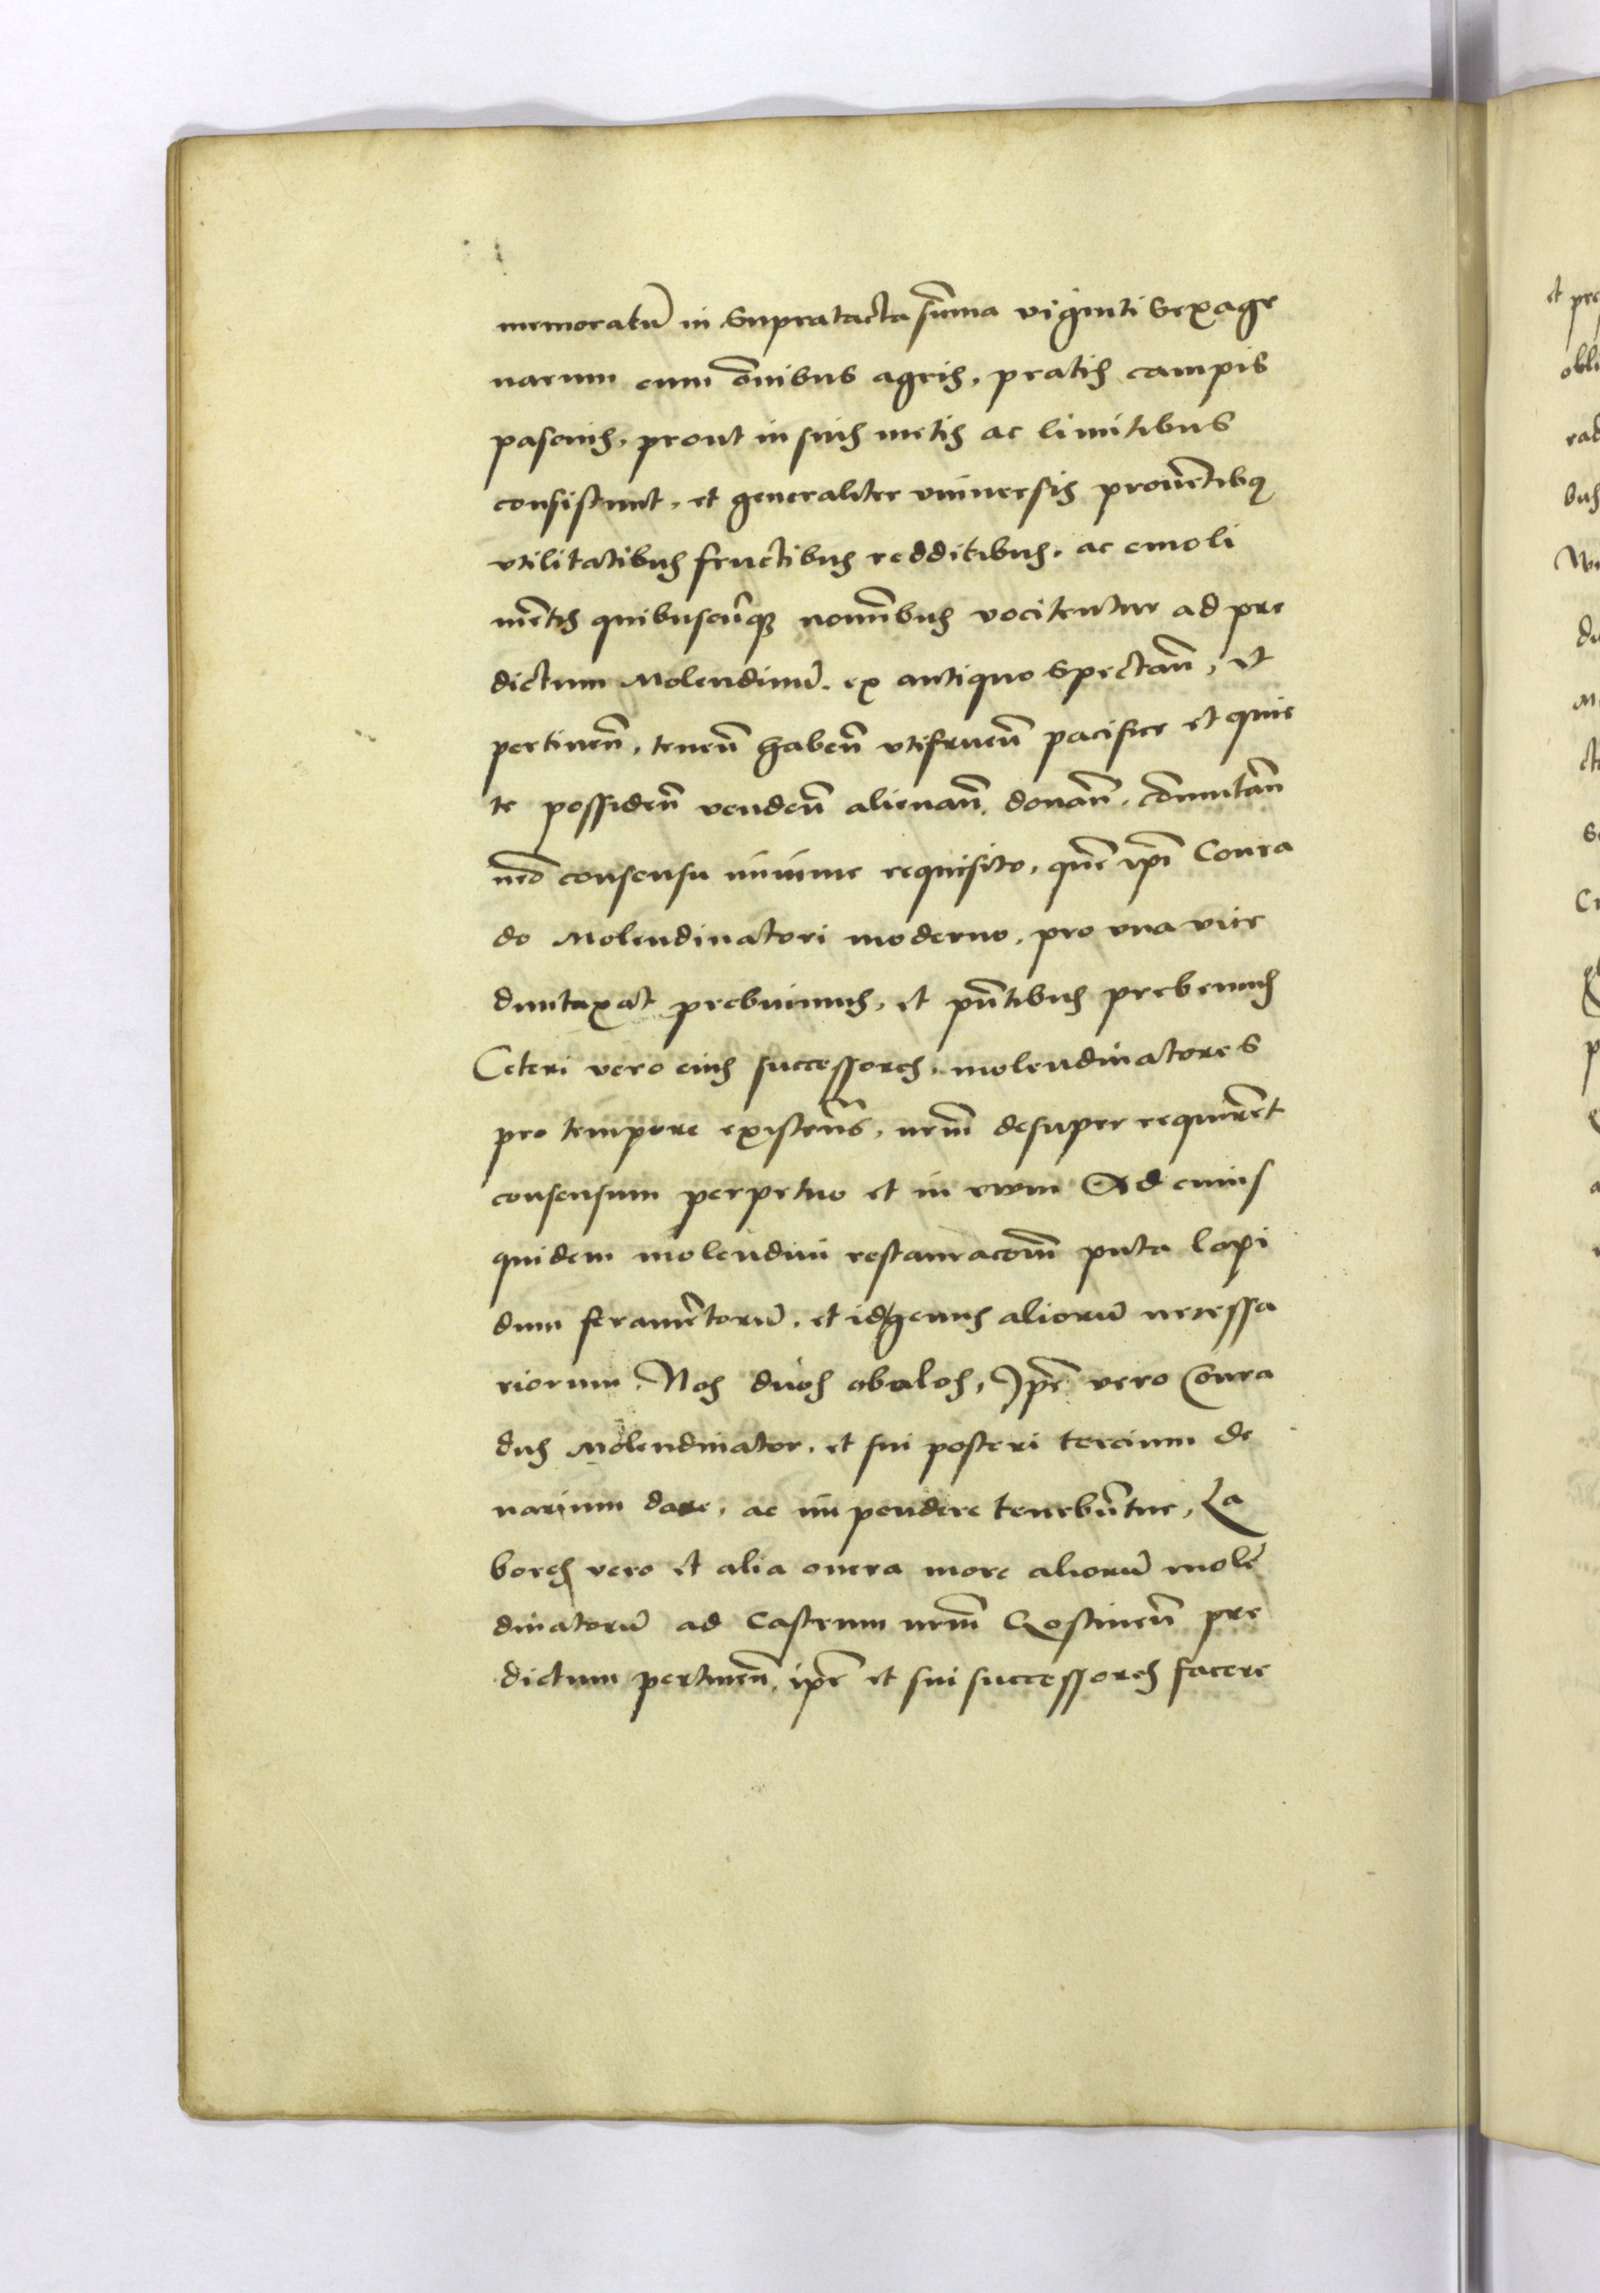 memoratū in Supratacta sūma viginti Sexage
narum cum ōnibus agris, pratis campis
pascuis, prout in suis metis ac limitibus
consistunt, et generaliter vniuersis prouētibꝫ
vtilitatibus fructibus redditibus, ac emoli
mētis quibuscūqꝫ nomībus vocitentur ad pre
dictum Molendinū. ex antiquo Spectañ, et
pertineñ, teneñ habeñ vtifrueñ pacifice et quie
te possideñ vendeñ alienañ, donañ, cōmutañ
nr̄o consensu minime requisito, quē ip̄i Conra
do Molendinatori moderno, pro vna vice
duntaxat prebuimus, et pn̄tibus prebemus
Ceteri vero eius successores, molendinatores
pro tempore existeñs, nr̄m desuper requirēt
consensum perpetuo et in ewm Ad cuius
quidem molendini restauracōm̄ puta lapi
dum feramētorū, et idgenus aliorū necessa
riorum, Nos duos obolos, Ip̄e vero Conra
dus Molendinator, et sui posteri tercium de
narium dare, ac impendere tenebūtur, La
bores vero et alia onera more aliorū molē
dinatorū ad Castrum nr̄m Costineñ pre
dictum pertineñ, ip̄e et sui successores facere
et pre
obli